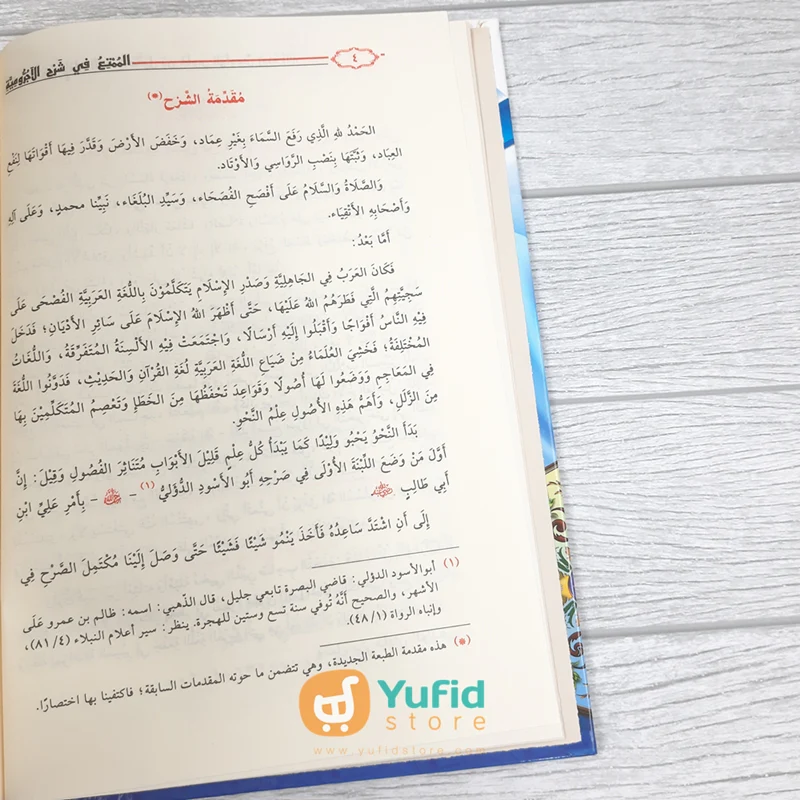 ٤
الممتع في شرح الآجرومية
مُقَدِّمَةُ الشَّرْحِ (*)
الحَمْدُ للهِ الَّذِي رَفَعَ السَّمَاءَ بِغَيْرِ عِمَاد، وَخَفَضَ الأَرْضَ وَقَدَّرَ فِيهَا أَقْوَاتَهَا لِنَفْعِ
العِبَاد، وَثَبَّتَهَا بِنَصْبِ الرَّوَاسِي وَالأَوْتَاد.
وَالصَّلَاةُ وَالسَّلَامُ عَلَى أَفْصَحِ الفُصَحَاء، وَسَيِّدِ البُلَغَاء، نَبِيِّنَا محمدٍ، وَعَلَى آلِهِ
وَأَصْحَابِهِ الأَتْقِيَاء.
أَمَّا بَعْدُ:
فَكَانَ العَرَبُ فِي الجَاهِلِيَّةِ وَصَدْرِ الإِسْلَامِ يَتَكَلَّمُوْنَ بِاللُّغَةِ العَرَبِيَّةِ الفُصْحَى عَلَى
سَجِيَّتِهِمُ الَّتِي فَطَرَهُمُ اللهُ عَلَيْهَا، حَتَّى أَظْهَرَ اللهُ الإِسْلَامَ عَلَى سَائِرِ الأَدْيَانِ؛ فَدَخَلَ
فِيْهِ النَّاسُ أَفْوَاجًا وَأَقْبَلُوا إِلَيْهِ أَرْسَالًا، وَاجْتَمَعَتْ فِيْهِ الأَلْسِنَةُ المُتَفَرِّقَةُ، وَاللُّغَاتُ
المُخْتَلِفَةُ؛ فَخَشِيَ العُلَمَاءُ مِنْ ضَيَاعِ اللُّغَةِ العَرَبِيَّةِ لُغَةِ القُرْآنِ وَالحَدِيْثِ، فَدَوَّنُوا اللُّغَةَ
فِي المَعَاجِمِ وَوَضَعُوا لَهَا أُصُولًا وَقَوَاعِدَ تَحْفَظُهَا مِنَ الخَطَإِ وَتَعْصِمُ المُتَكَلِّمِيْنَ بِهَا
مِنَ الزَّلَلِ، وَأَهَمُّ هَذِهِ الأُصُولِ عِلْمُ النَّحْوِ.
بَدَأَ النَّحْوُ يَحْبُو وَلِيْدًا كَمَا يَبْدَأُ كُلُّ عِلْمٍ قَلِيْلَ الأَبْوَابِ مُتَنَاثِرَ الفُصُولِ وَقِيْلَ: إِنَّ
أَوَّلَ مَنْ وَضَعَ اللَّبِنَةَ الأُوْلَى فِي صَرْحِهِ أَبُو الأَسْوَدِ الدُّؤَلِيُّ (١) - - بِأَمْرِ عَلِيِّ ابْنِ
أَبِي طَالِبٍ
إِلَى أَنِ اشْتَدَّ سَاعِدُهُ فَأَخَذَ يَنْمُو شَيْئًا فَشَيْئًا حَتَّى وَصَلَ إِلَيْنَا مُكْتَمِلَ الصَّرْحِ فِي
(١) أبوالأسود الدؤلي: قاضي البصرة تابعي جليل، قال الذّهبي: اسمه: ظالم بن عمرو عَلَى
الأشهر، والصحيح أَنَّهُ تُوفي سنة تسع وستين للهجرة. ينظر: سير أعلام النبلاء (٤/ ٨١)،
وإنباه الرواة (١/ ٤٨).
(*) هذه مقدمة الطبعة الجديدة، وهي تتضمن ما حوته المقدمات السابقة؛ فاكتفينا بها اختصارًا.
Yufid
store
www.yufidstore.com